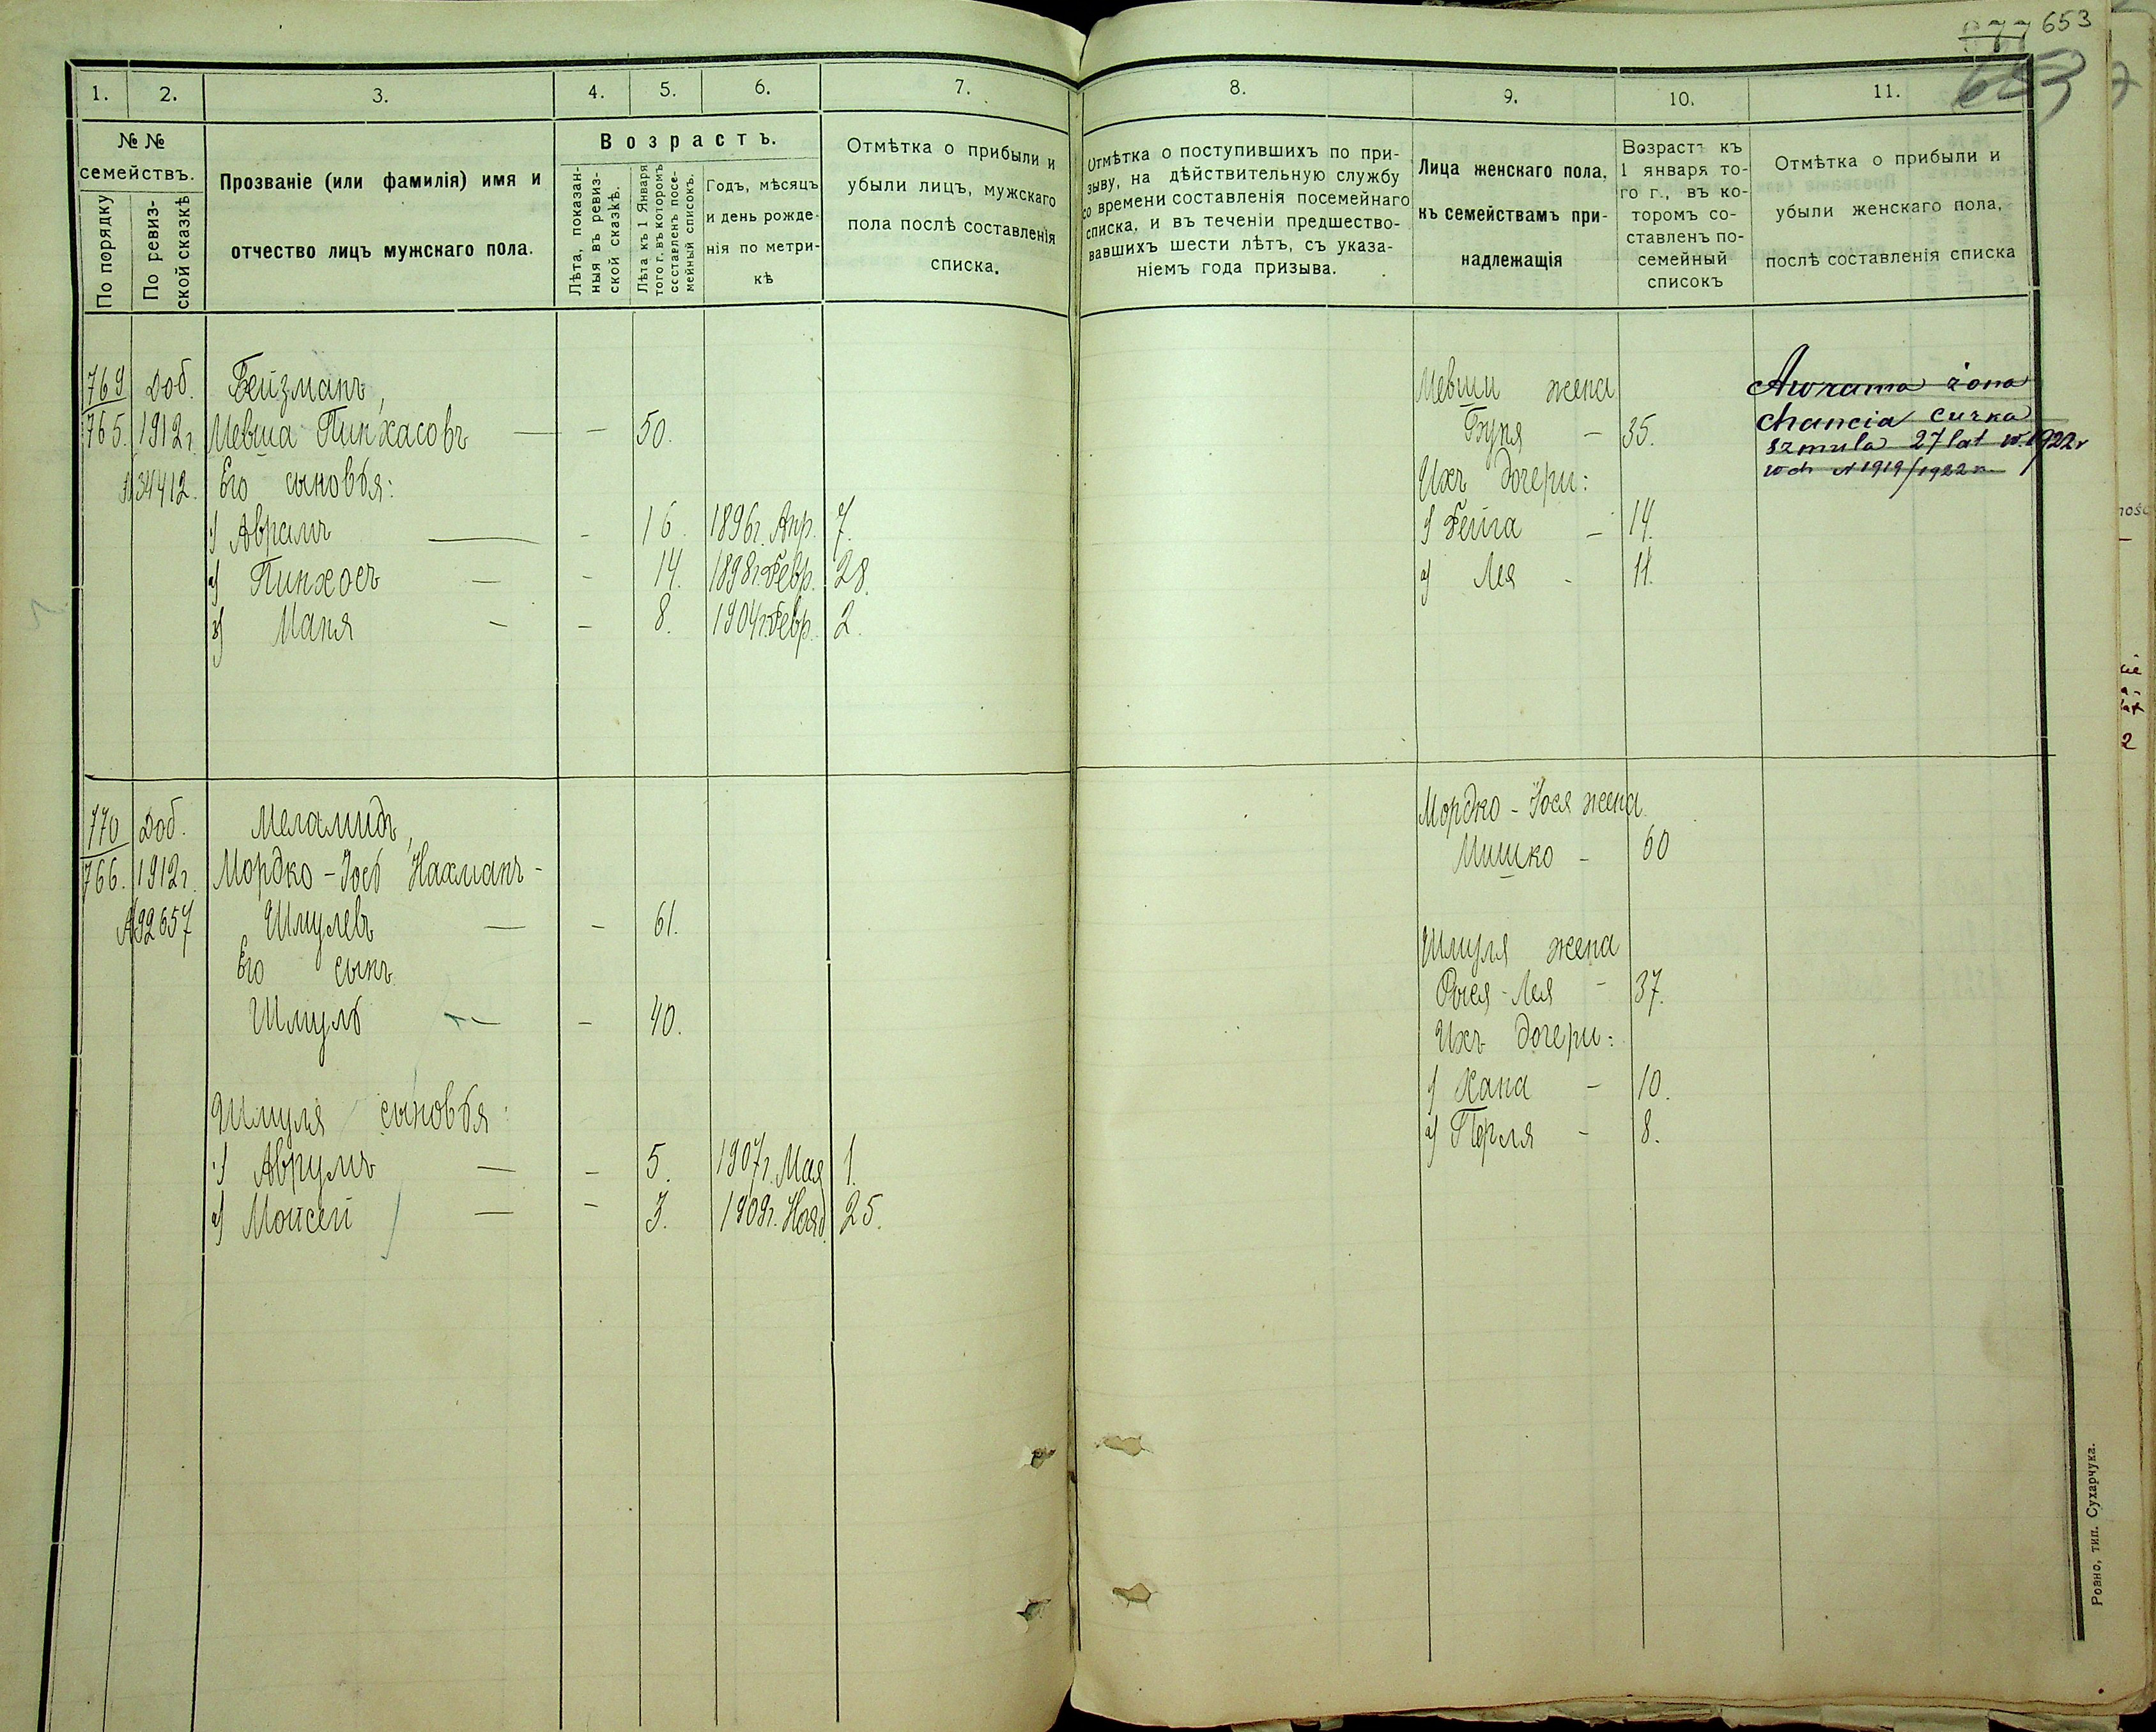 877 653
653
1. 2. 3. 4. 5. 6. 7. 8. 9. 10. 11.
№ №
семействъ.
По порядку
По ревиз-
ской сказкѣ
Прозваніе (или фамилія) имя и
отчество лицъ мужскаго пола.
Возрастъ.
Лѣта, показан-
ныя въ ревиз-
ской сказкѣ.
Лѣта къ 1 Января
того г. въ которомъ
составленъ посе-
мейный списокъ.
Годъ, мѣсяцъ
и день рожде-
нія по метри-
кѣ
Отмѣтка о прибыли и
убыли лицъ, мужскаго
пола послѣ составленія
списка.
Отмѣтка о поступившихъ по при-
зыву, на дѣйствительную службу
со времени составленія посемейнаго
списка, и въ теченіи предшество-
вавшихъ шести лѣтъ, съ указа-
ніемъ года призыва.
Лица женскаго пола,
къ семействамъ при-
надлежащія
Возрастъ къ
1 января то-
го г., въ ко-
торомъ со-
ставленъ по-
семейный
списокъ
Отмѣтка о прибыли и
убыли женскаго пола,
послѣ составленія списка
769 Доб. Бейзманъ,
765. 1912 г. Мевша Пинхасовъ — – 50.
34412. Его сыновья:
1) Аврамъ — - 16. 1896 г. Апр. 7.
2) Пинхосъ — - 14. 1898 г. Февр. 28.
3) Маня - – 8. 1904 г. Февр. 2.
Мевши жена
Буня – 35.
Ихъ дочери:
1) Фейга – 14.
2) Лея - 11.
Awrama żona
Chancia curka
Szmula 27 lat w. 1922 r
wch N 1919/1922 r.
770 Доб. Меламидъ,
766. 1912 г. Мордко-Іось Нахманъ-
№ 92657 Шмулевъ — – 61.
Его сынъ
Шмуль — – 40.
Шмуля сыновья:
1) Аврумъ — – 5. 1907 г. Мая 1.
2) Мойсей — - 3. 1909 г. Нояб. 25.
Мордко-Іося жена
Мишко – 60
Шмуля жена
Рыся-Лея - 37.
Ихъ дочери:
1) Хана – 10.
2) Перля – 8.
Ровно, тип. Сухарчука.